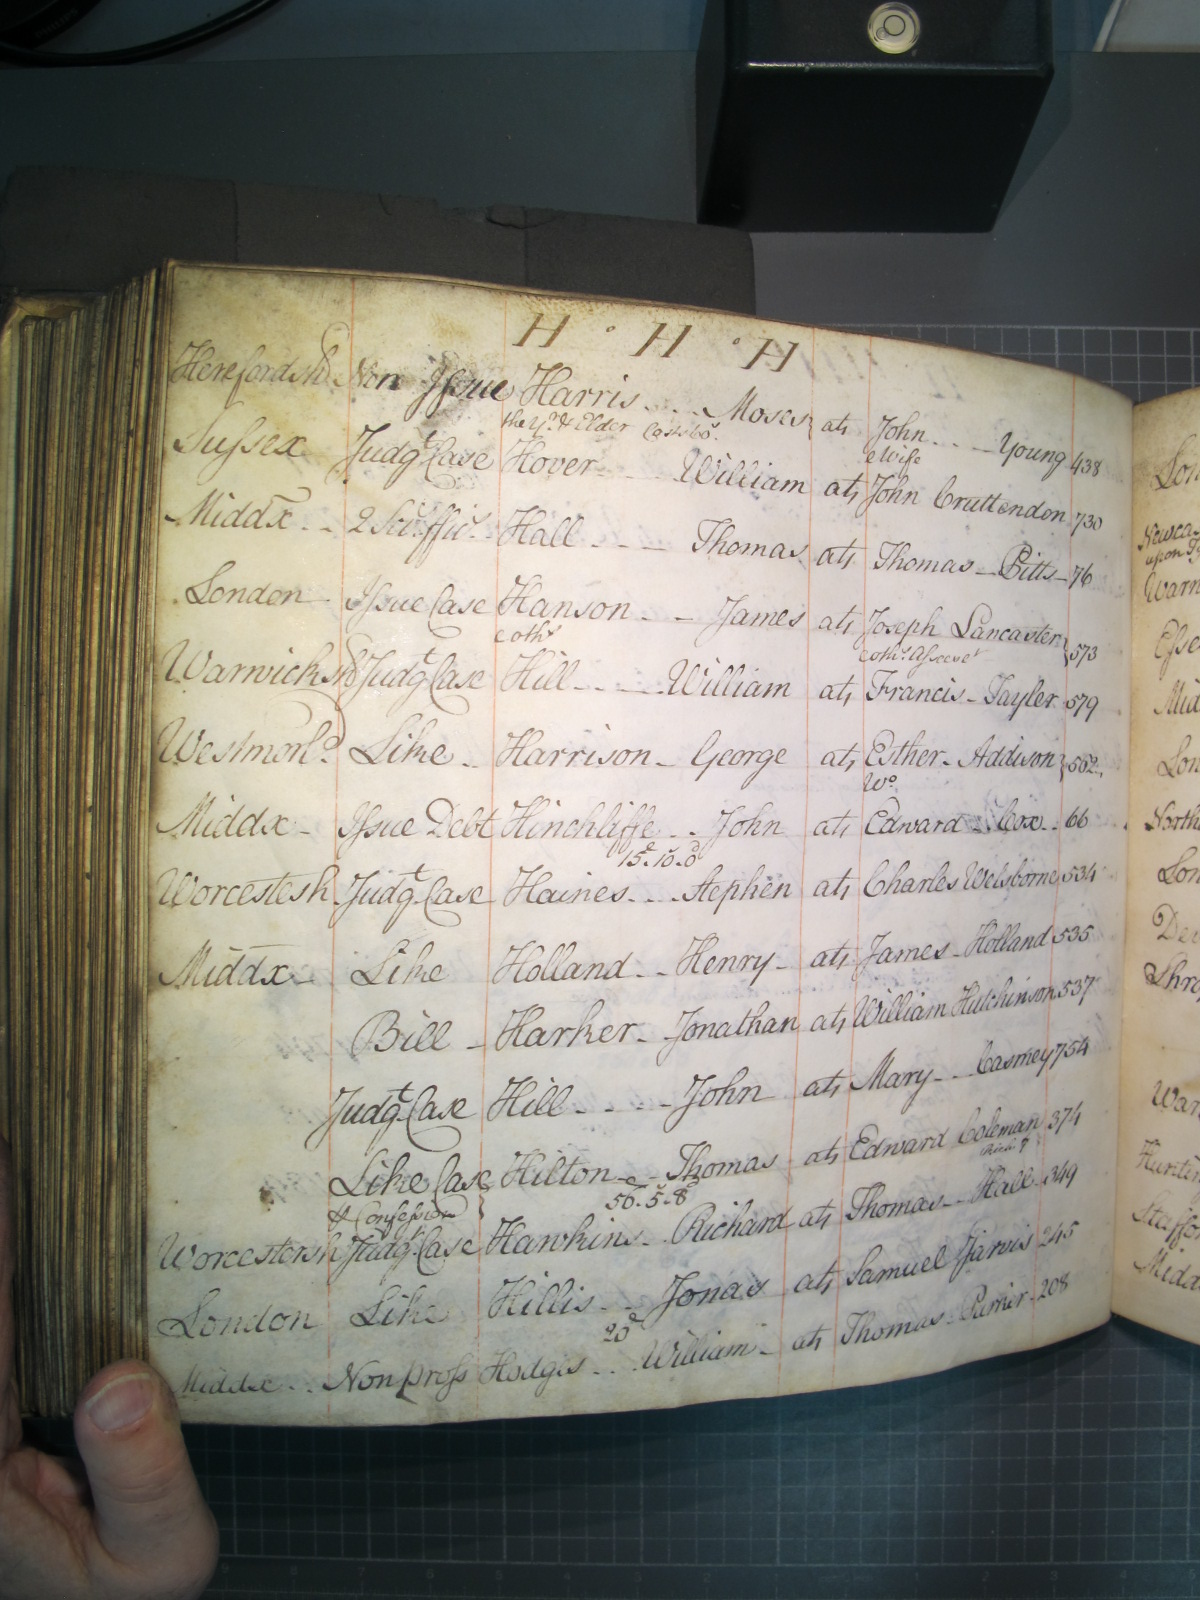 H · H · H
Herefordsh Non Issue Harris - - - Moses at John - - - Young 438
the Yr. & Elder & Wife
Sussex Judgt Case Hover - - - William at John Cruttendon 730
Middx - - 2 Hall - - - Thomas at Thomas - Pitts - 76
London - Issue Case Hanson - - James at Joseph Lancaster 573
& othrs & othrs
Warwicksh Judgt Case Hill - - - William at Francis - Tayler 579
Westmorld. Like - Harrison - George at Esther - Addison 502
Wo.
Middx - Issue Debt Hinchliffe - - John at Edward - Cox - - 66
15. 10. 0
Worcestesh Judgt Case Haines - - - Stephen at Charles Welsborne 534
Middx - Like Holland - - Henry - at James - Holland 535
Bill - Harker - Jonathan at William Hutchinson 537
Judgt Case Hill - - - - John at Mary - - Casmey 754
Like Case Hilton - - Thomas at Edward Coleman 374
& Confession 56. 5. 8
Worcestersh Judgt Case Hawkins - Richard at Thomas - Hall - 349
London Like Hillis - - Jonas at Samuel Jarvis 245
20
Middx - - Non Pross Hodges - - William - at Thomas - Purrier - 208
Lon
upon
Warn
Esse
Mid
Lon
North
Lon
Dev
Shro
War
Hunten
Staffor
Midd